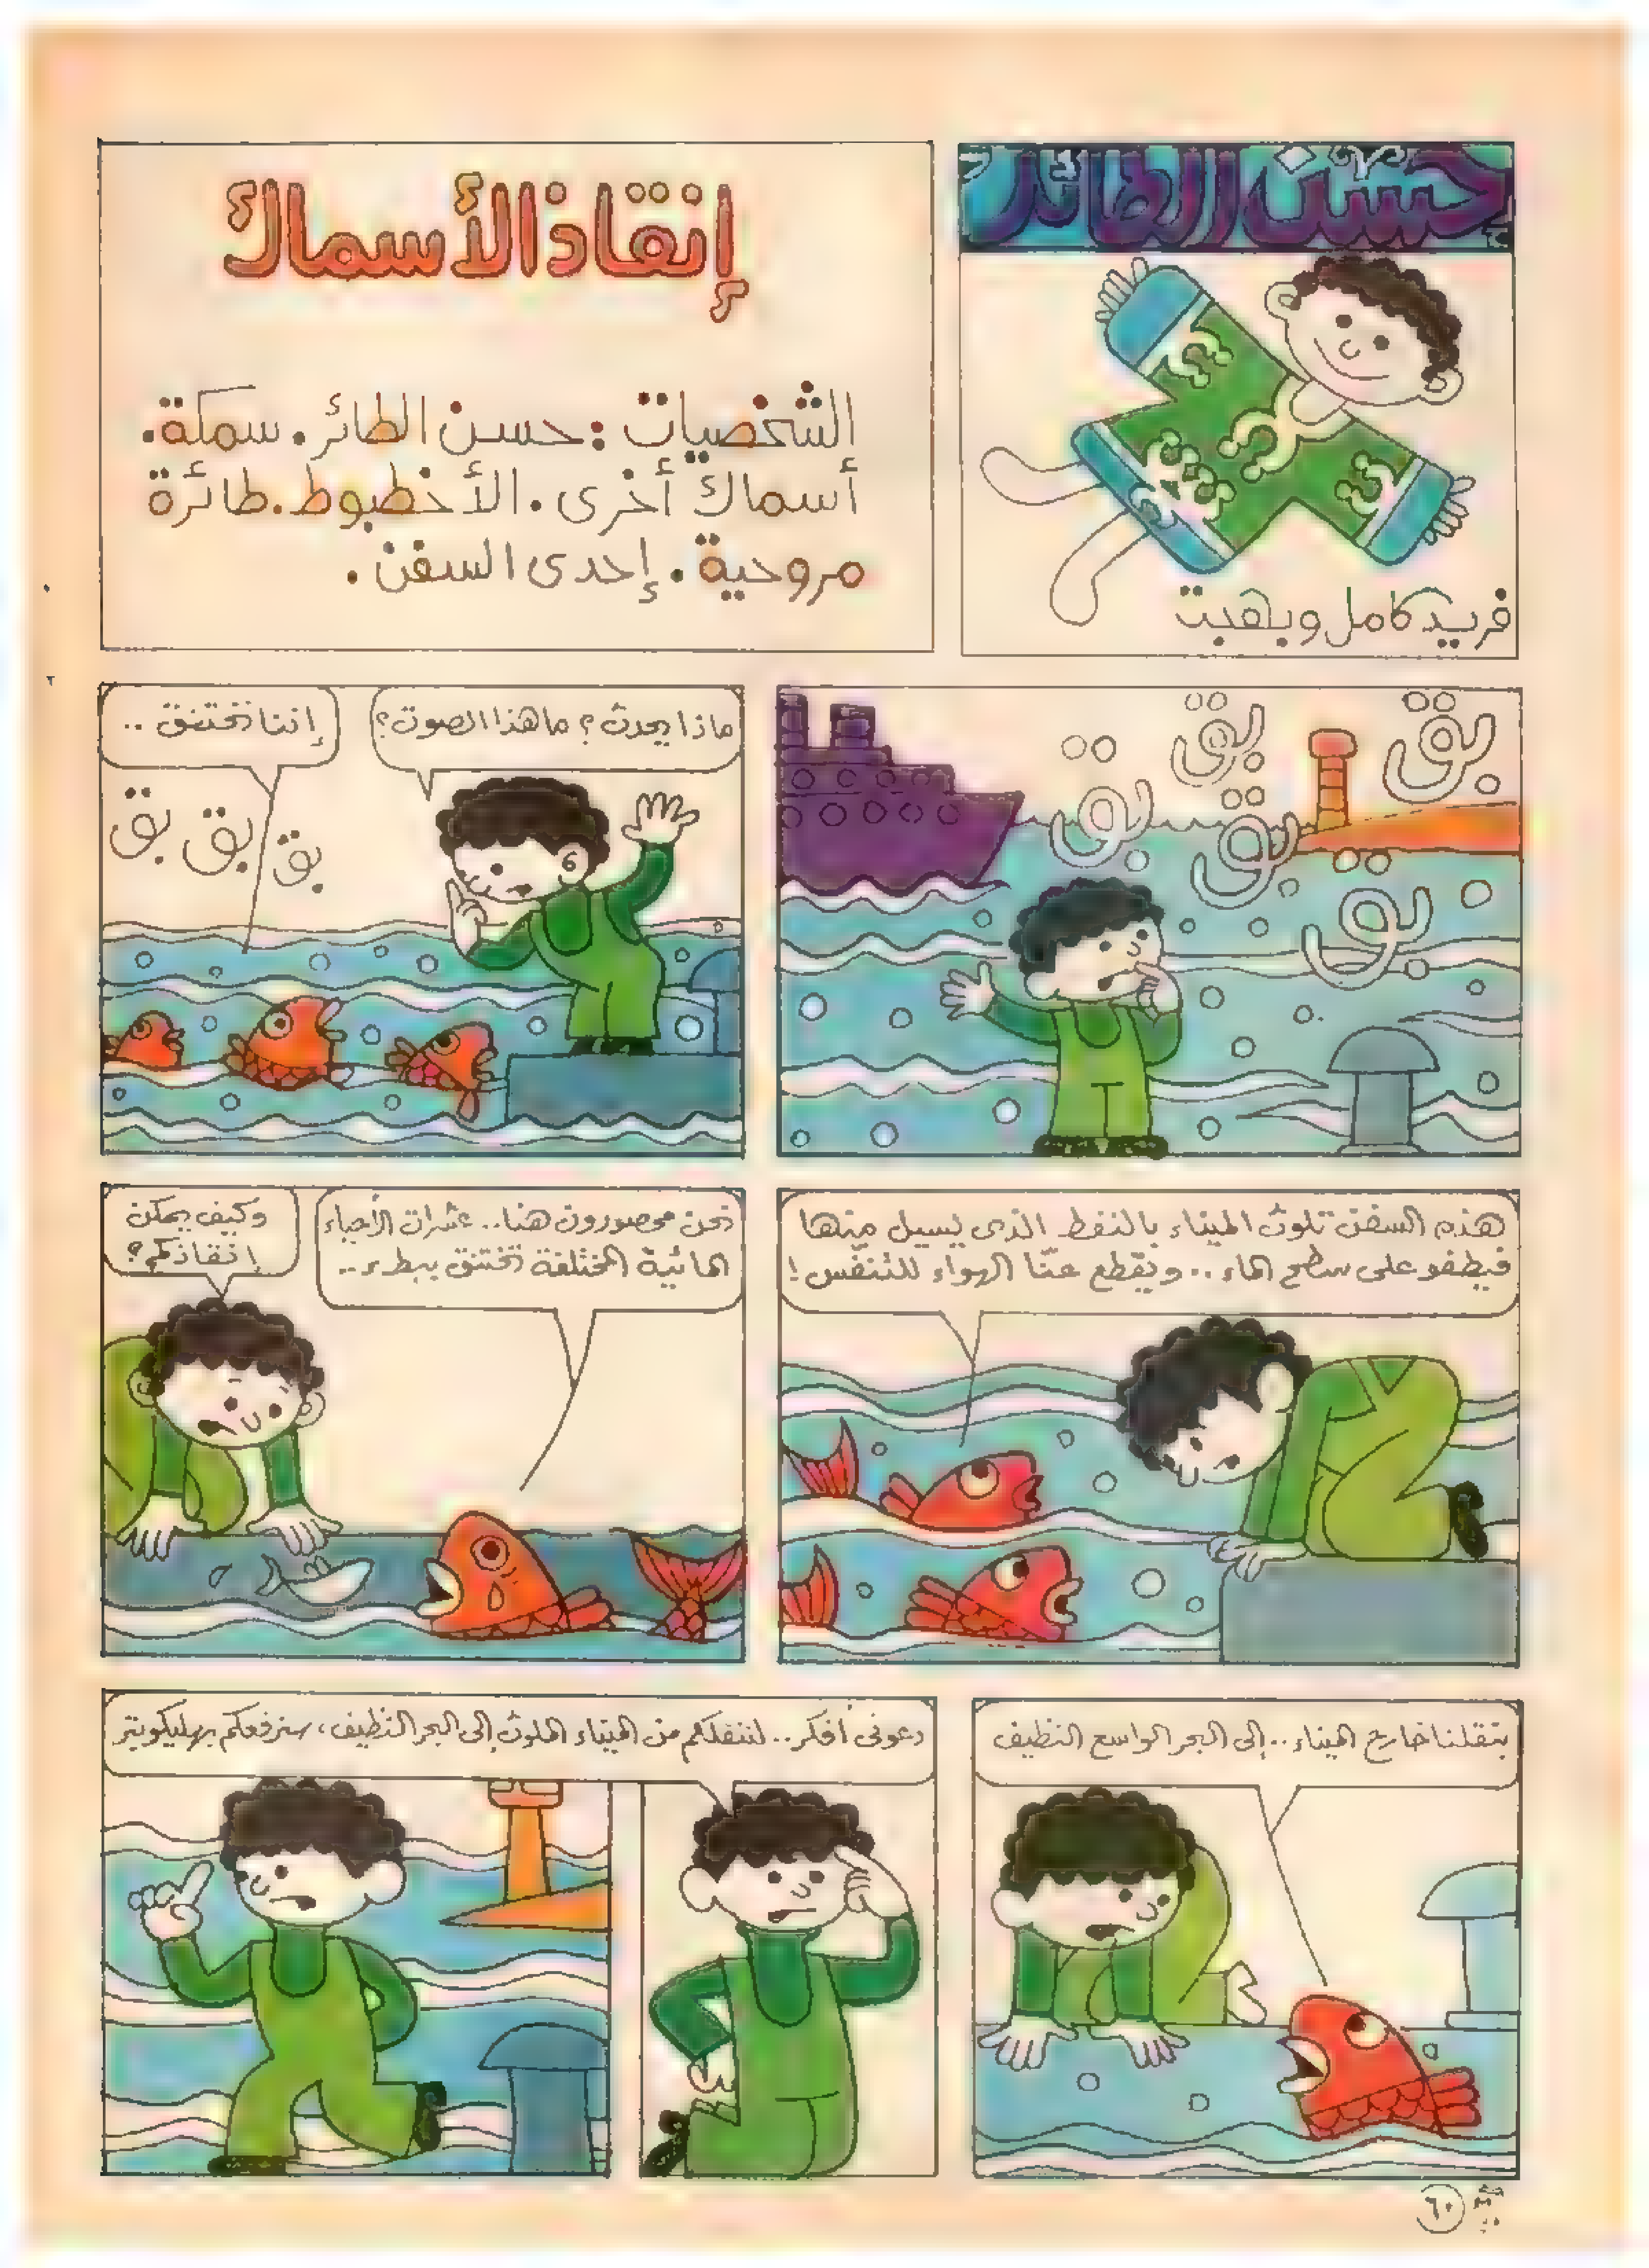 حسن الطائر
فريد كامل وبهجت
إنقاذ الأسماك
الشخصيات : حسن الطائر . سمكة .
أسماك أخرى . الأخطبوط . طائرة
مروحية . إحدى السفن .
بق
بق
بق
بق
بق
ماذا يحدث ؟ ما هذا الصوت ؟
إننا نختنق ..
بق بق بق
هذه السفن تلوث الميناء بالنفط الذى يسيل منها
فيطفو على سطح الماء .. ويقطع عنّا الهواء للتنفّس !
نحن محصورون هنا .. عشرات الأحياء
المائية المختلفة تختنق ببطء ..
وكيف يمكن
إنقاذكم ؟
بنقلنا خارج الميناء .. إلى البحر الواسع النظيف
دعونى أفكر .. لننقلكم من الميناء الملوث إلى البحر النظيف ، سنرفعكم بهليكوبتر
٦٠